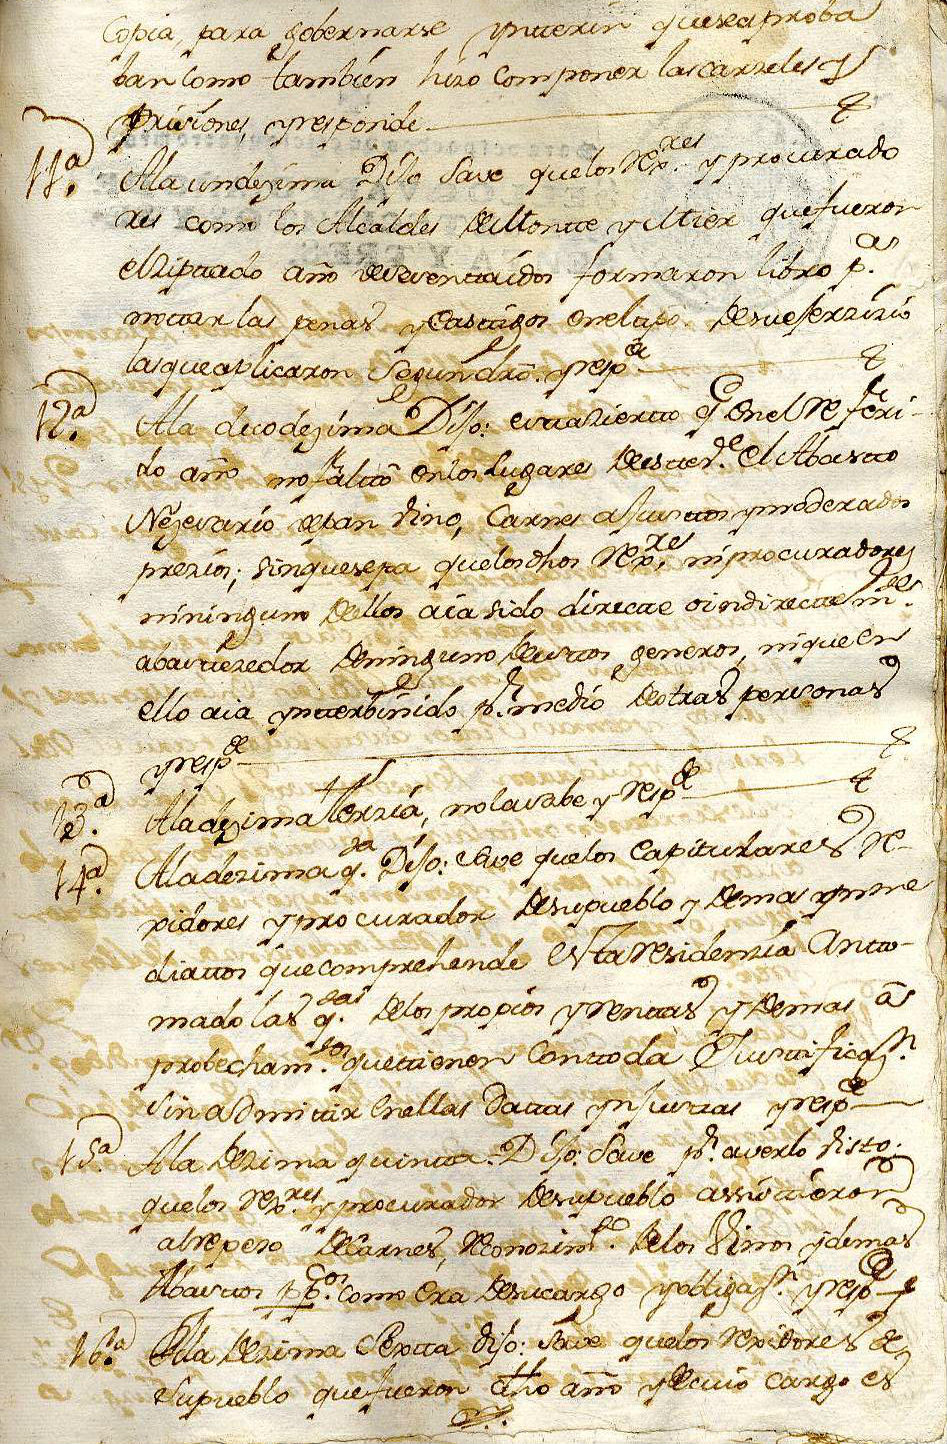 Copia, para gobernarse ynterin quese aproba
ban como tambien hizo componer las carzeles y
Prisiones, yresponde
11ª A la undezima Dijo Save quelos rexres y procurado
res como los Alcaldes de Monte y Mier que fueron
el zitado año de sesenta i dos formaron libro pª
notar las penas y castigos en el tpo. de su ejerzizio
las que aplicaron segun dro. y respde
12ª A la duodezima Dijo: esta zierto q en el referi-
do año no faltò en los Lugares de este vlle el Abasto
Nezesario de pan vino, Carnes a justos y moderados
prezios; sin que sepa que los dhos rexres ni procuradores
ni ninguno de llos aia sido directe o indirecte mte
abastezedor de ninguno de estos generos, ni que en
ello aia ynterbinido pr. medio de otras personas
y respde
13ª A la dezima terzia, no la sabe y respde
14ª A la dezima qta Dijo: save que los capitulares re-
xidores y procurador de su pueblo y demas ynme
diatos que comprehende esta residenzia an to-
mado las qtas de los propios y rentas y demas a
probechamtos que tienen con toda Justificazn
sin admitir en ellas datas ynjustas y respde
15ª A la Dezima quinta Dijo: Save pr. averlo visto:
que los rexres y procurador de su pueblo assistieron
al repeso de carnes, reconozimto de los vinos y demas
Abastos ppcos como era de su cargo y obligazn y respde
16ª A la Dezima Sexta dijo: save que los rexidores de
su pueblo que fueron dho año y de cuio cargo es